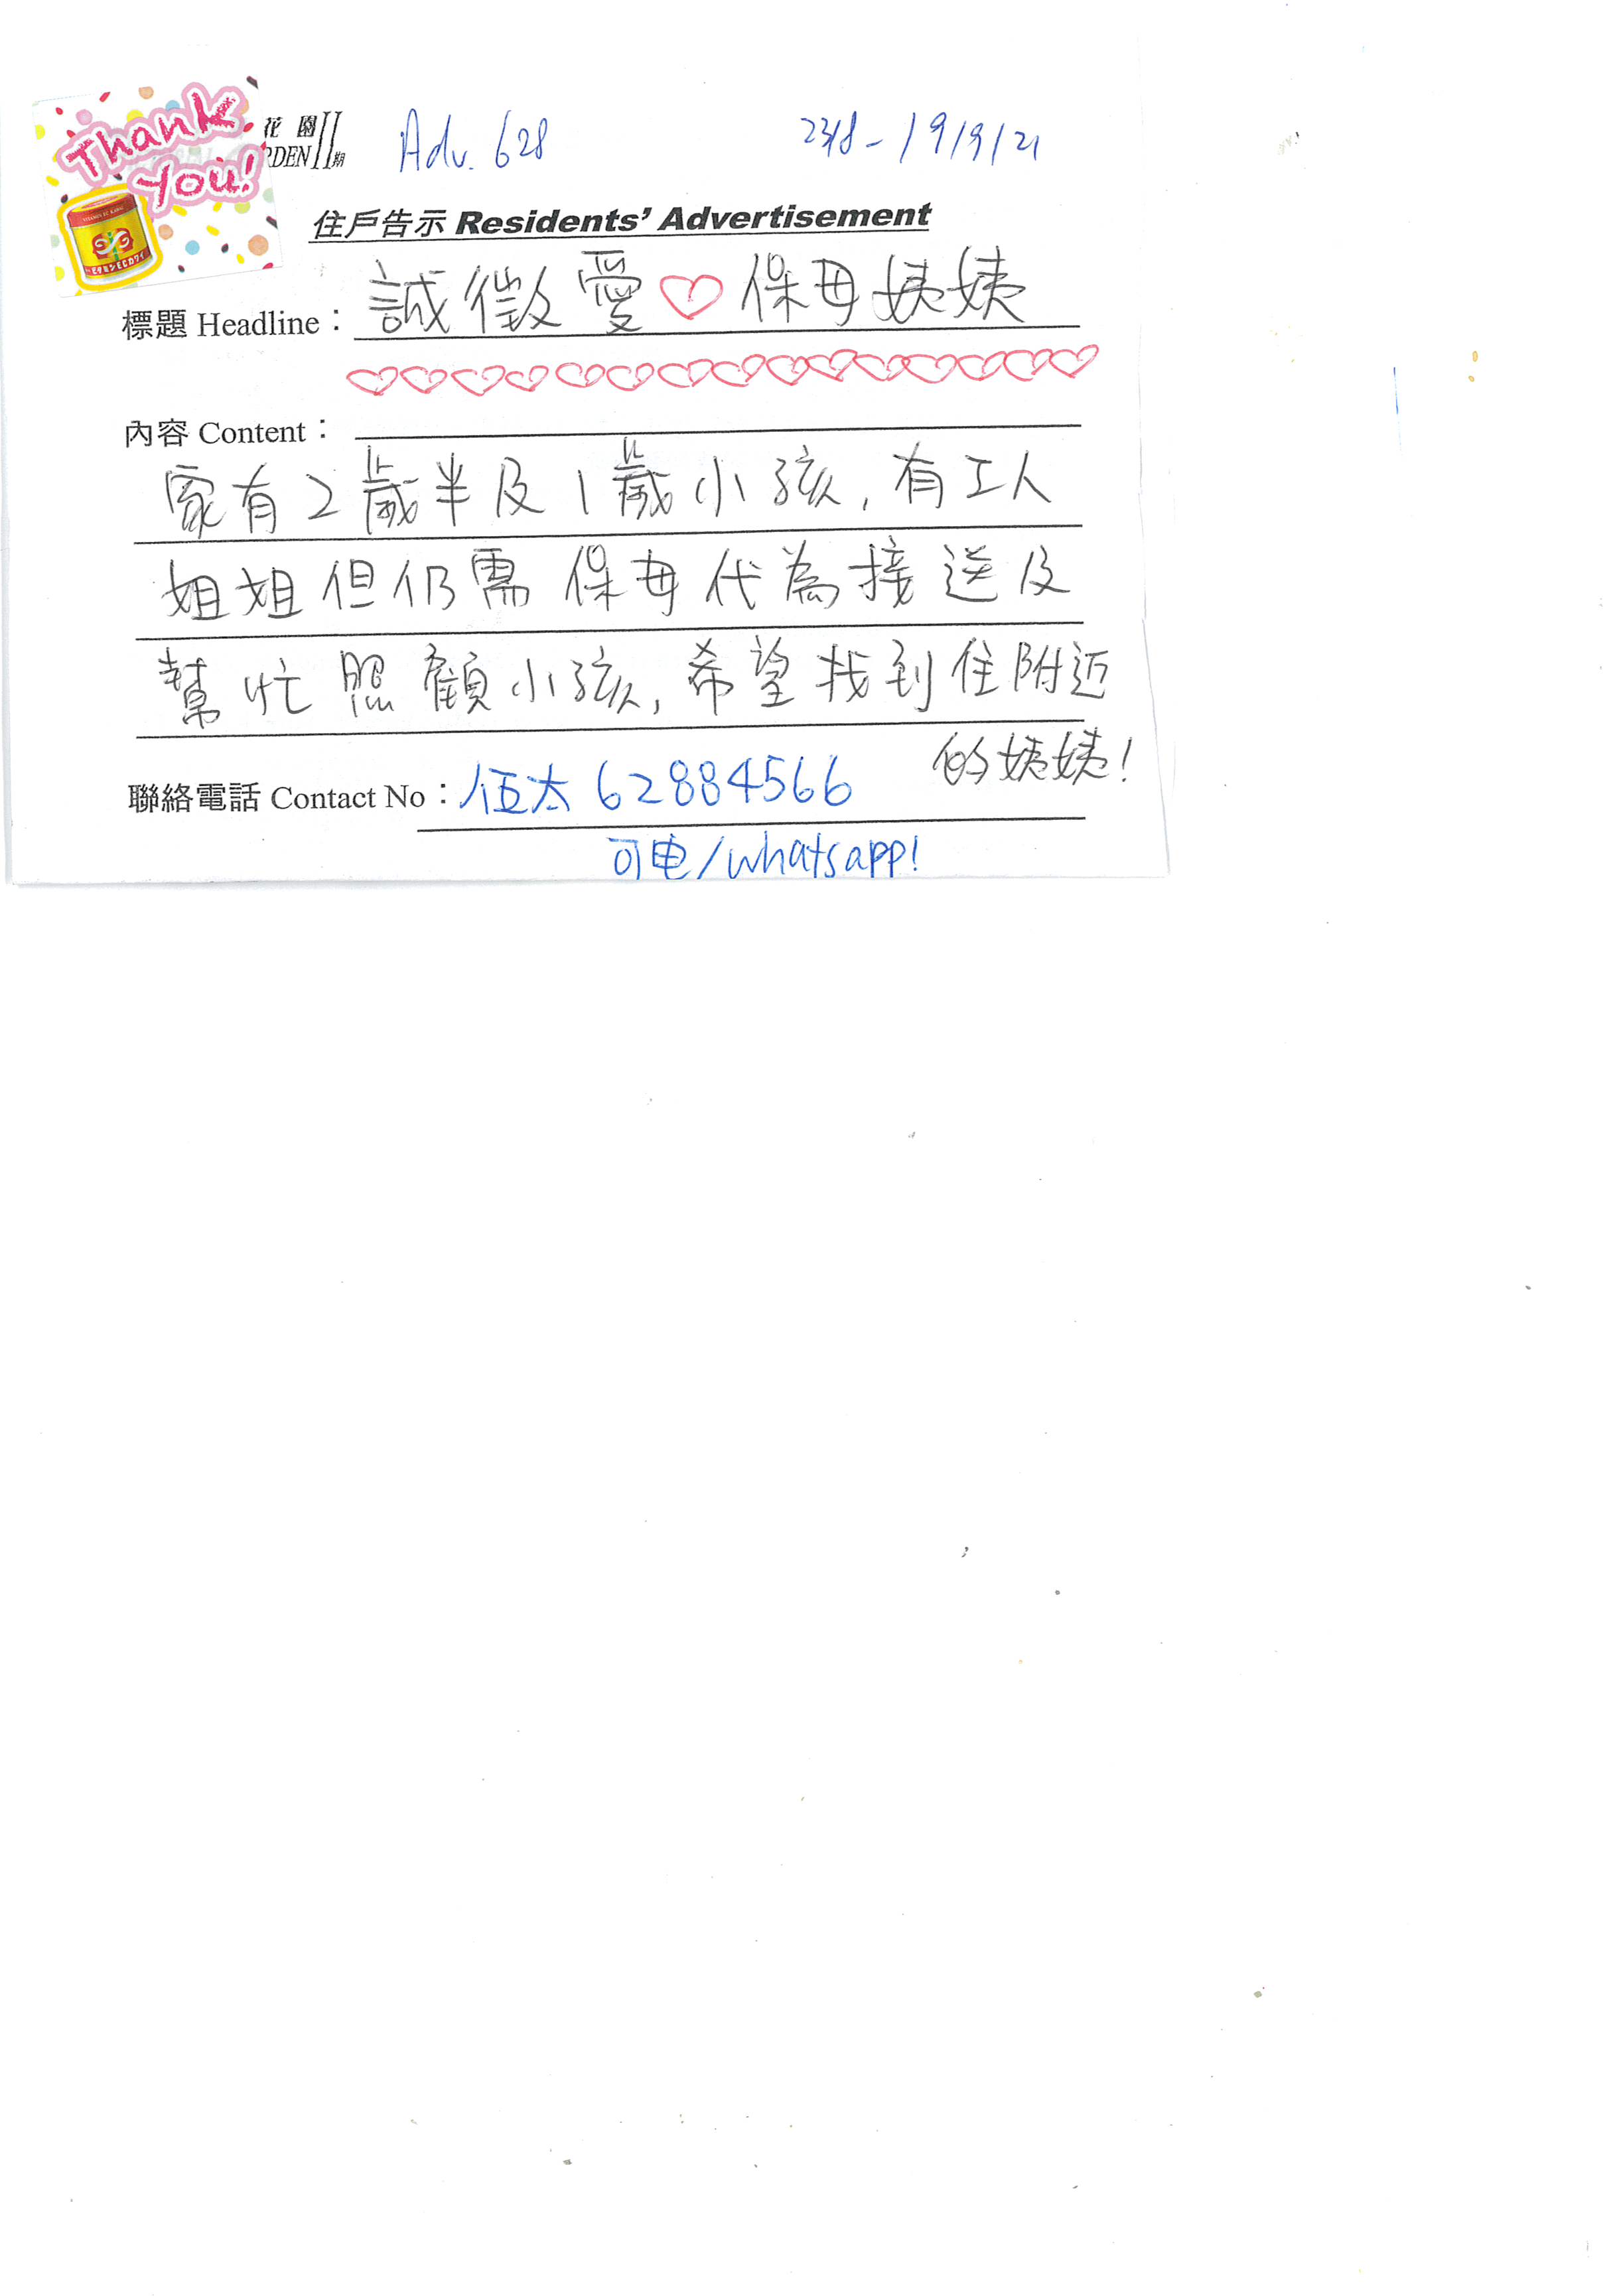 Thank You!
花園II期
RDEN
Adv. 628
23/8 - 19/9/21
住戶告示 Residents' Advertisement
標題 Headline： 誠徵愛♡保母姨姨
內容 Content：
家有2歲半及1歲小孩, 有工人
姐姐但仍需保母代為接送及
幫忙照顧小孩, 希望找到住附近
的姨姨!
聯絡電話 Contact No： 伍太 62884566
可电/whatsapp!